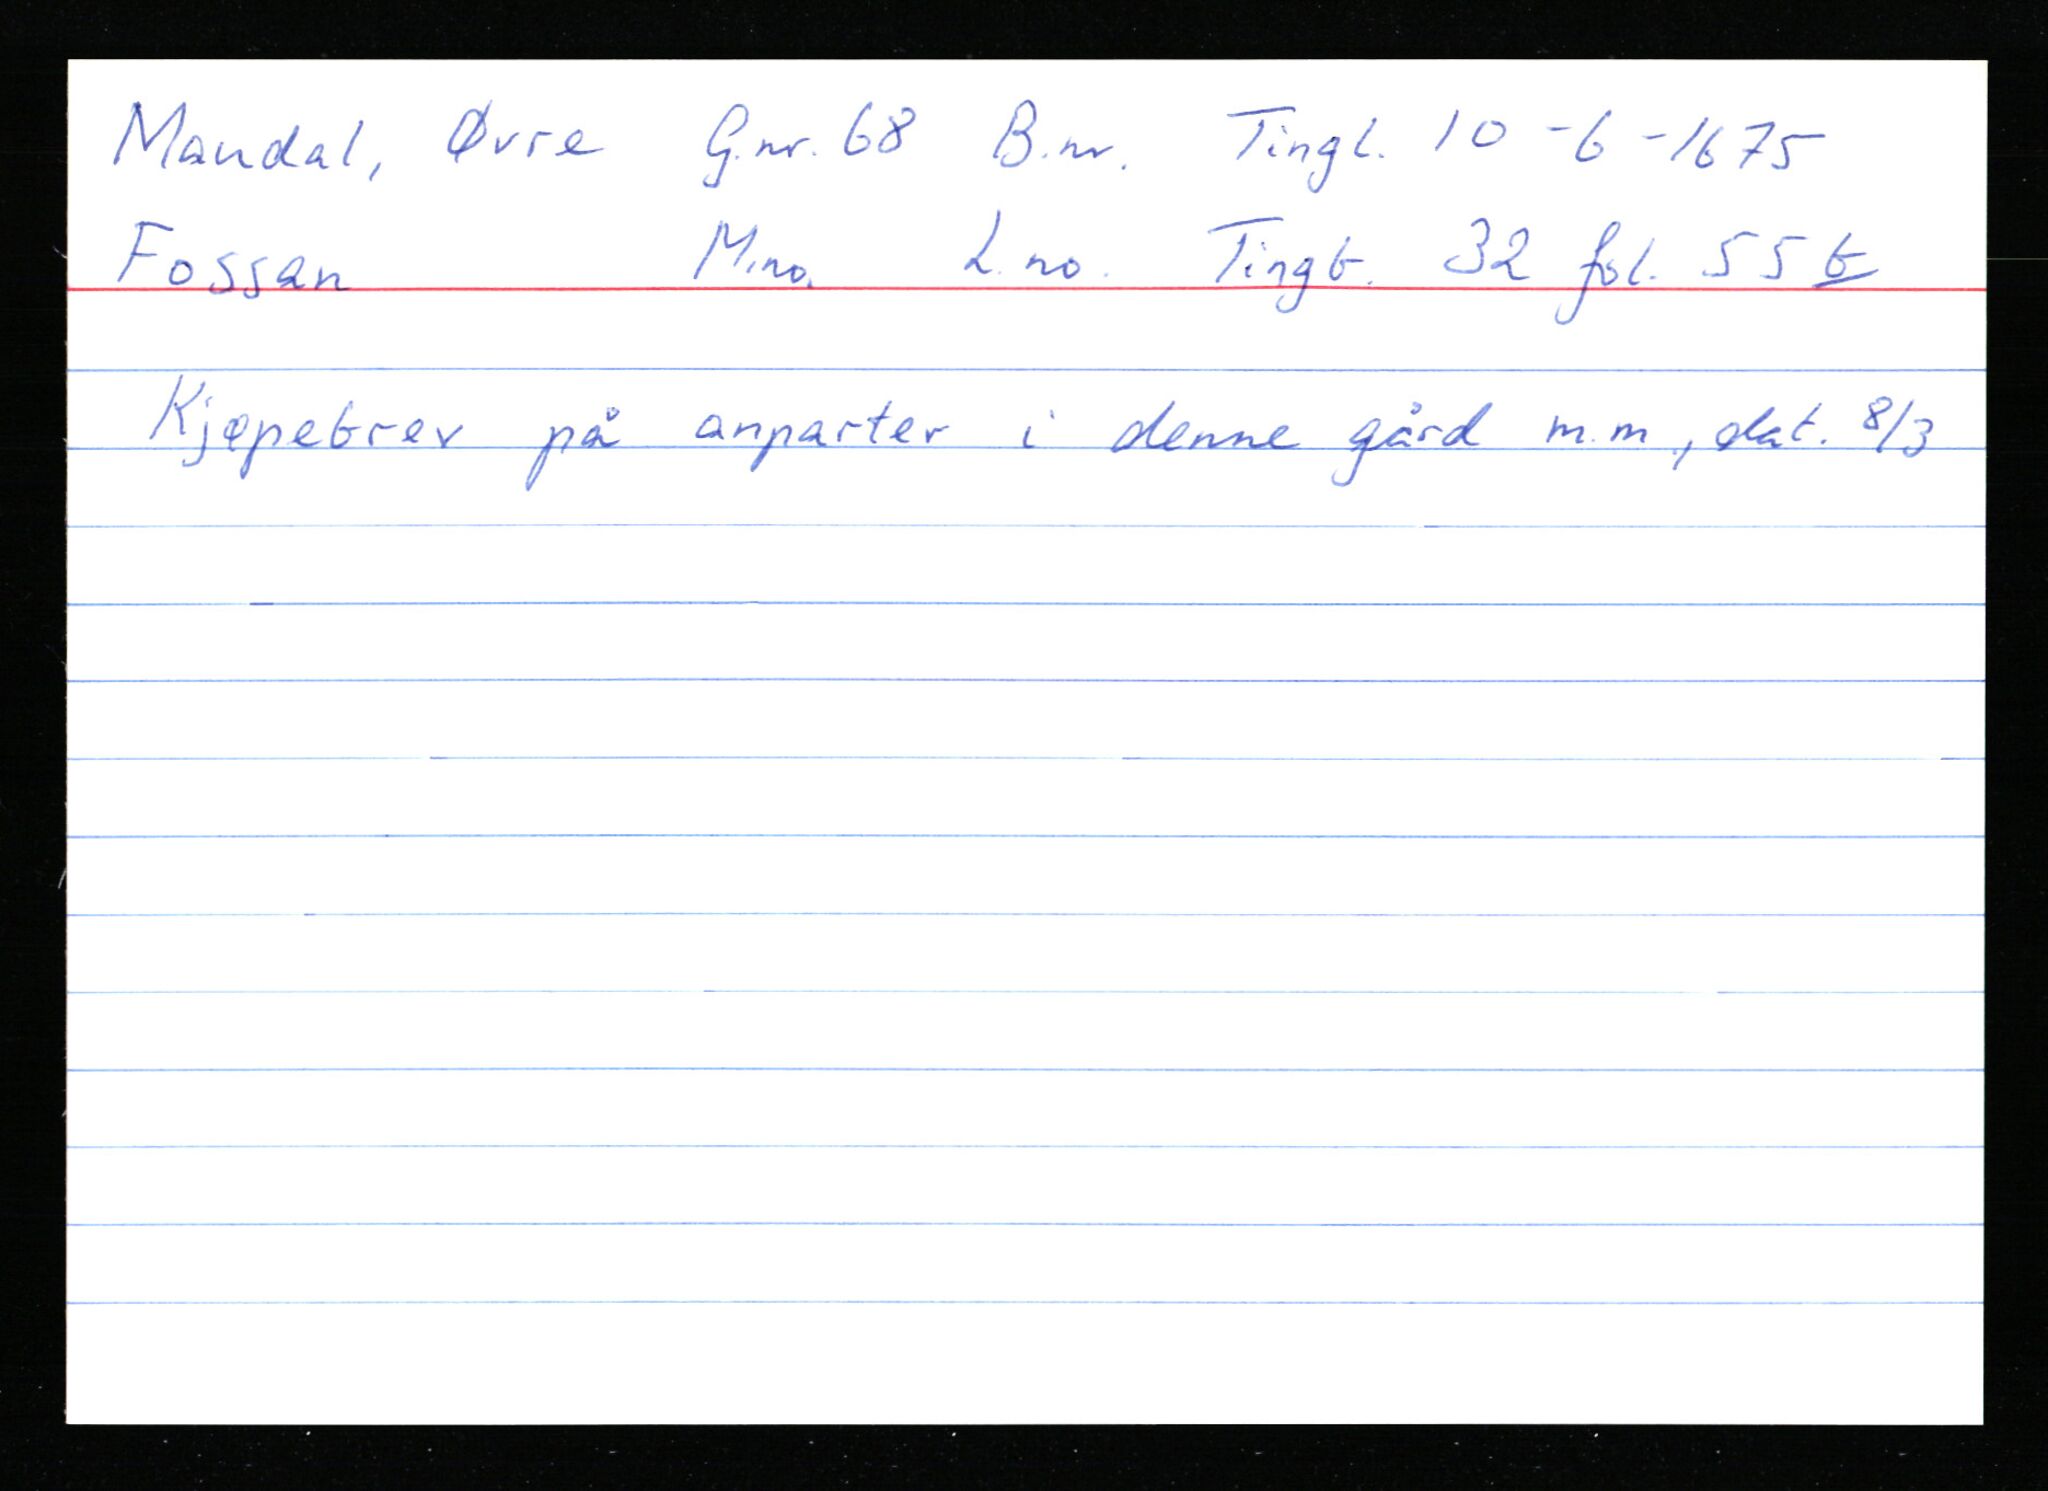 Mandal, Øvre G.nr. 68 B.nr. Tingl. 10-6-1675
Fossan M.no. L.no. Tingb. 32 fol. 55b
Kjøpebrev på anparter i denne gård m.m., dat. 8/3